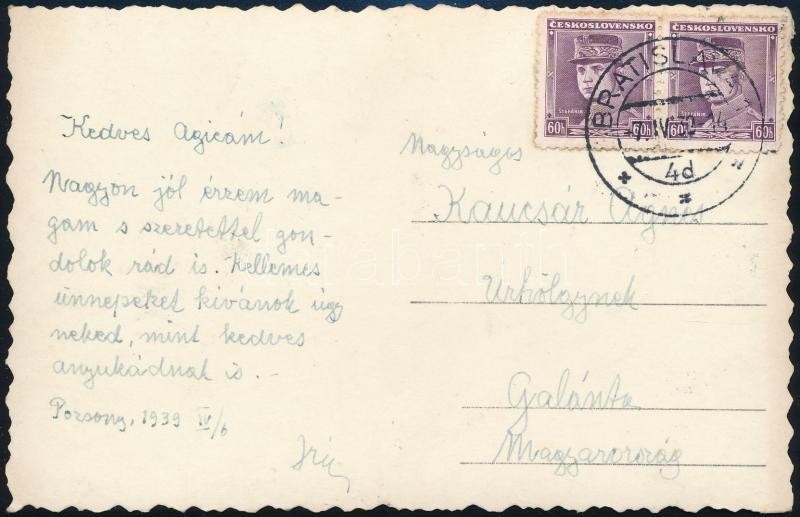 Kedves Agicám!
Nagyon jól érzem ma-
gam s szeretettel gon-
dolok rád is. Kellemes
ünnepeket kívánok úgy
neked, mint kedves
anyukádnak is. -
Pozsony, 1939 IV/6
ČESKOSLOVENSKO
ČESKOSLOVENSKO
ŠTEFÁNIK
ŠTEFÁNIK
60h 60h
60h 60h
BRATISLAVA
4d
Nagyságos
Kaucsár Ágnes
Úrhölgynek
Galánta
Magyarország
darabanth